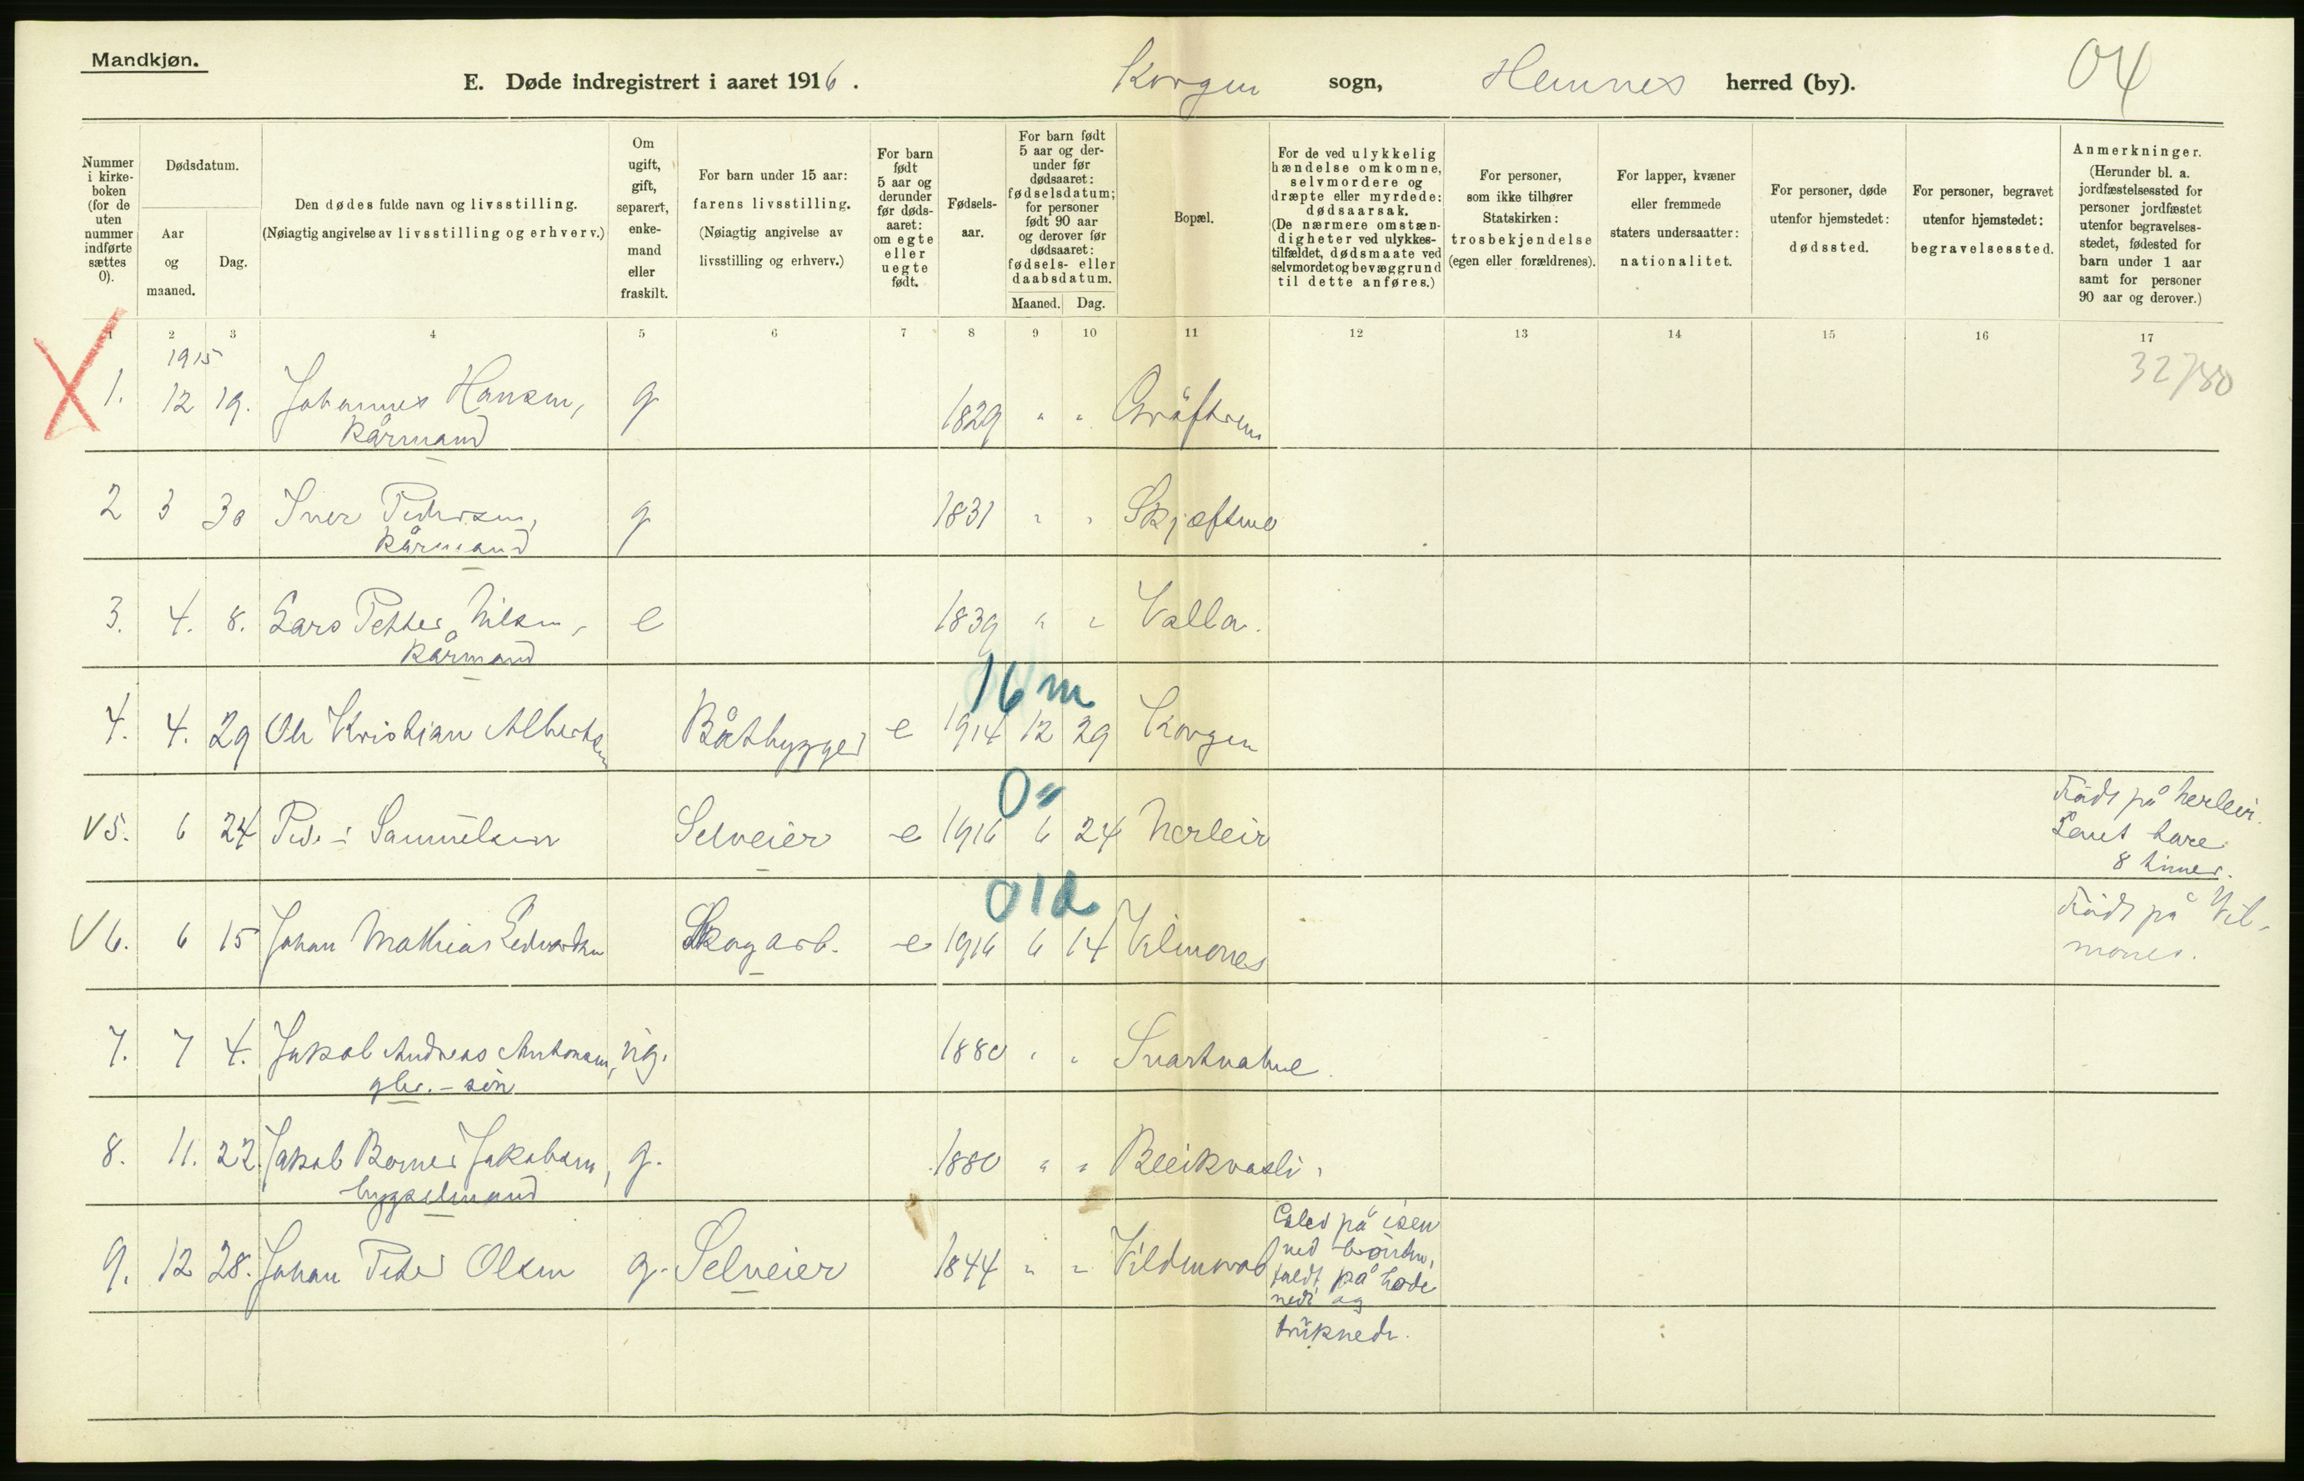 Mandkjøn.
E. Døde indregistrert i aaret 1916. Korgen sogn, Hemnes herred (by). 04
Nummer i kirkeboken (for de uten nummer indførte sættes 0).
Dødsdatum.
Aar og maaned.
Dag.
Den dødes fulde navn og livsstilling.
(Nøiagtig angivelse av livsstilling og erhverv.)
Om ugift, gift, separert, enkemand eller fraskilt.
For barn under 15 aar: farens livsstilling.
(Nøiagtig angivelse av livsstilling og erhverv.)
For barn født 5 aar og derunder før dødsaaret: om egte eller uegte født.
Fødselsaar.
For barn født 5 aar og derunder før dødsaaret: fødselsdatum; for personer født 90 aar og derover før dødsaaret: fødsels- eller daabsdatum.
Maaned. Dag.
Bopæl.
For de ved ulykkelig hændelse omkomne, selvmordere og dræpte eller myrdede: dødsaarsak.
(De nærmere omstændigheter ved ulykkestilfældet, dødsmaate ved selvmordet og bevæggrund til dette anføres.)
For personer, som ikke tilhører Statskirken: trosbekjendelse (egen eller forældrenes).
For lapper, kvæner eller fremmede staters undersaatter: nationalitet.
For personer, døde utenfor hjemstedet: dødssted.
For personer, begravet utenfor hjemstedet: begravelsessted.
Anmerkninger.
(Herunder bl. a. jordfæstelsessted for personer jordfæstet utenfor begravelsesstedet, fødested for barn under 1 aar samt for personer 90 aar og derover.)
1 2 3 4 5 6 7 8 9 10 11 12 13 14 15 16 17
1915
32780
1. 12 19. Johannes Hansen, g 1829 " "
kårmand
2 3 30 Iver Pedersen, g 1831 " " Skjæftmo
kårmand
3. 4. 8. Lars Petter Nilsen, e 1839 " " Valla.
kårmand
16 m
4. 4. 29 Ole Kristian Albertsen Båtbygger e 1914 12 29 Korgen
0"
V 5. 6 24 Peder Samuelsen Selveier e 1916 6 24 Nerleir
Född på Nerleir.
Levet bare
8 timer.
01d
V 6. 6 15 Johan Mathias Edvardsen Skogarb. e 1916 6 14 Vilmones
Född på Vil-
mones.
7. 7 4. Jakob Andreas Antonsen, ug. 1880 " " Svartvatne.
gbr. - sön
8. 11. 22. Jakob Bernes Jakobsen, g. 1880 " " Bleikvasli.
bygselmand
9. 12 28. Johan Peder Olsen g. Selveier 1844 " "
på isen
ned
faldt på hode
ned og
druknede.